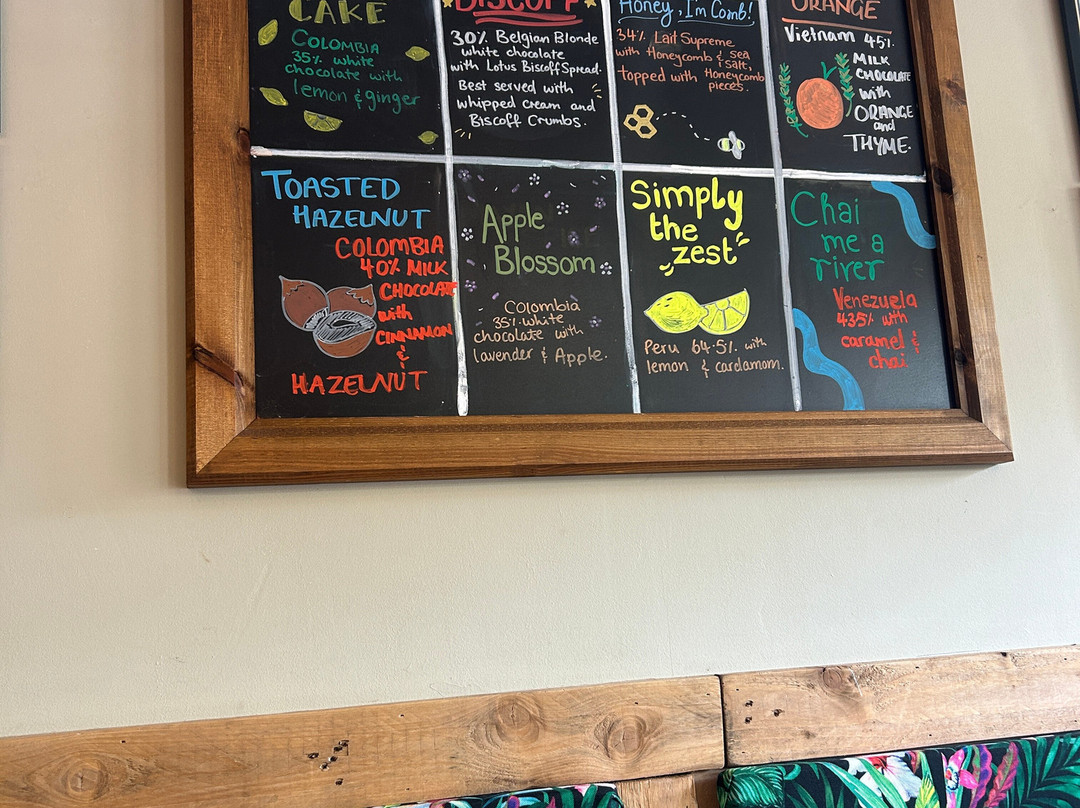 CAKE
COLOMBIA
35% white
chocolate with
lemon & ginger
BISCOFF
30% Belgian Blonde
white chocolate
with Lotus Biscoff Spread.
Best served with
whipped cream and
Biscoff Crumbs.
Honey, I'm Comb!
34% Lait Supreme
with Honeycomb & sea
salt,
topped with Honeycomb
pieces.
ORANGE
Vietnam 45%
MILK
CHOCOLATE
with
ORANGE
and
THYME.
TOASTED
HAZELNUT
COLOMBIA
40% MILK
CHOCOLATE
with
CINNAMON
&
HAZELNUT
Apple
Blossom
Colombia
35% white
chocolate with
lavender & Apple.
Simply
the
zest
Peru 64.5% with
lemon & cardamom.
Chai
me a
river
Venezuela
43.5% with
caramel &
chai